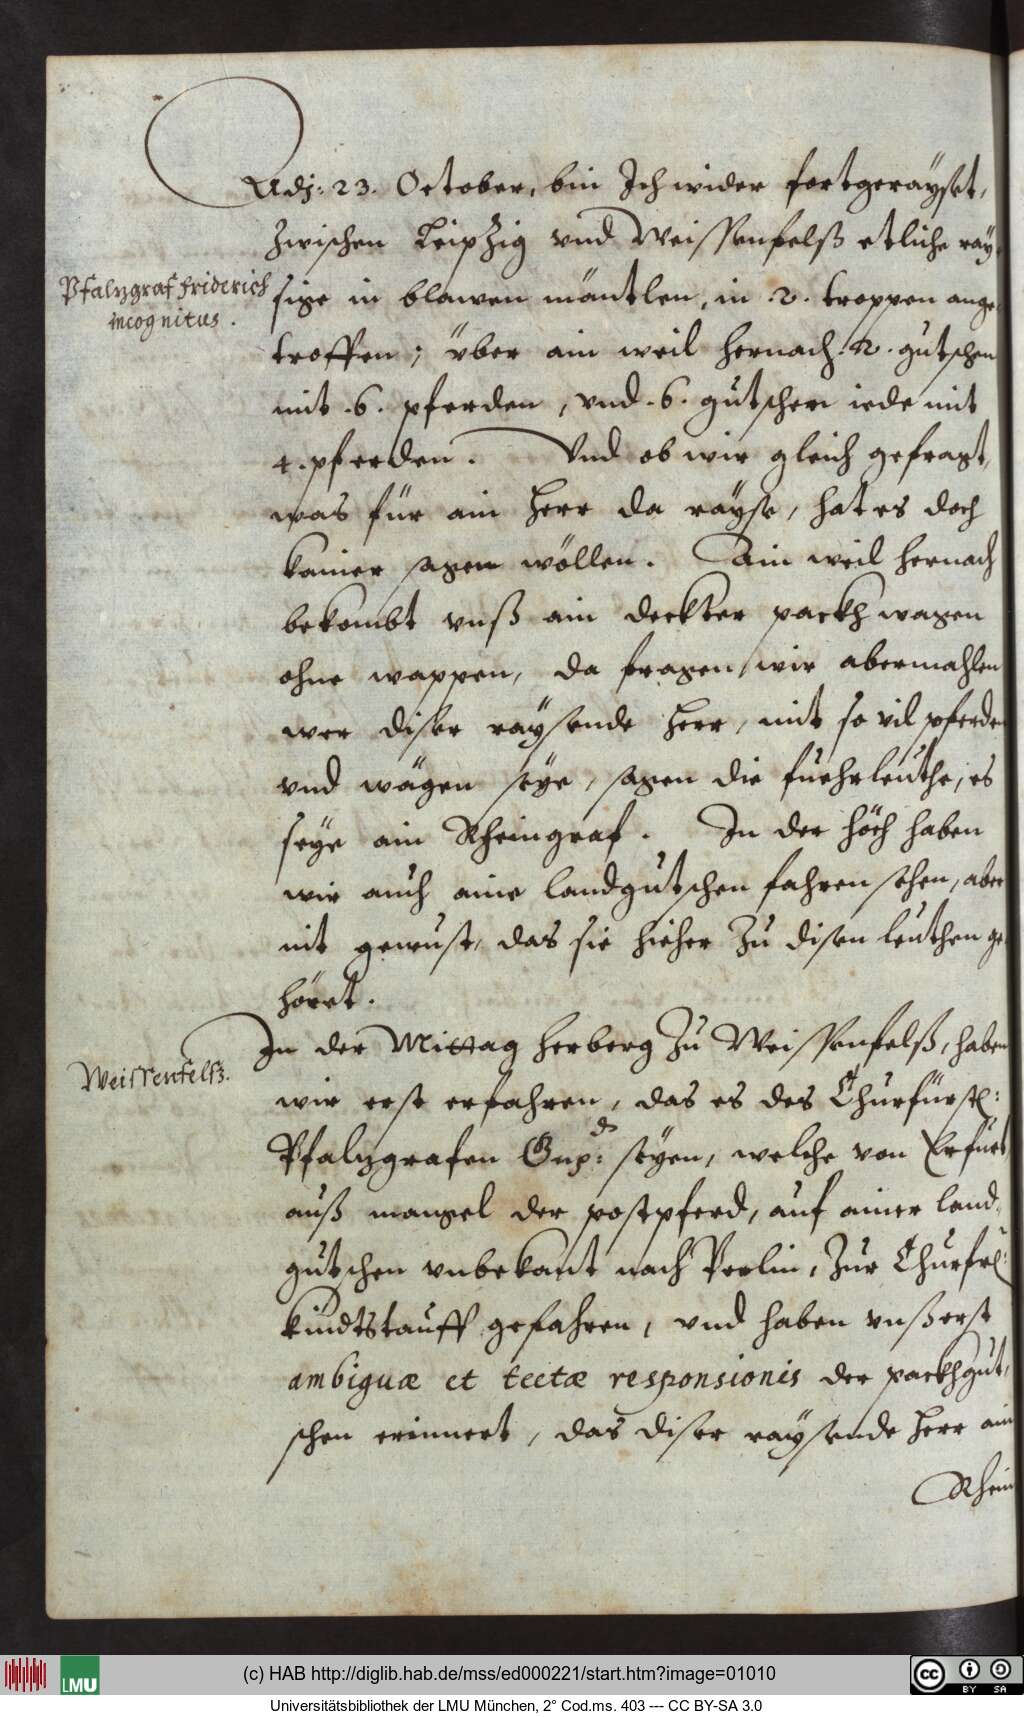 Adj: 23. October, bin Ich wider fortgeraÿset,
zwischen Leipzig vnd Weissenfelß etliche raÿ-
Pfalzgraf Friderich
incognitus.
sige in blawen mäntlen, in .2. troppen ange-
troffen; über ain weil hernach .2. gutschen
mit .6. pferden, vnd .6. gutschen iede mit
4. pferden. Vnd ob wir gleich gefragt,
was für ain Herr da raÿse, hat es doch
kainer sagen wöllen. Ain weil hernach
bekombt vnß ain deckter packh wagen
ohne wappen, da fragen wir abermahlen
wer diser raÿsende Herr, mit so vil pferden
vnd wägen seÿe, sagen die fuehrleuthe, es
seÿe ain Rheingraf. In der höch haben
wir auch aine landgutschen fahren sehen, aber
nit gewust, das sie hieher zu disen leuthen ge-
höret.
Weissenfelß.
In der Mittag herberg zu Weissenfelß, haben
wir erst erfahren, das es des Churfürstl:
Pfalzgrafen Gnd: seÿen, welche von Erfurt
auß mangel der postpferd, auf ainer land-
gutschen vnbekant nach Perlin, zur Churfrl:
kindtstauff gefahren, vnd haben vnß erst
ambiguæ et tectæ responsionis der packhgut-
schen erinnert, das diser raÿsende Herr ain
Rhein
(c) HAB http://diglib.hab.de/mss/ed000221/start.htm?image=01010
LMU
cc BY SA
Universitätsbibliothek der LMU München, 2° Cod.ms. 403 --- CC BY-SA 3.0